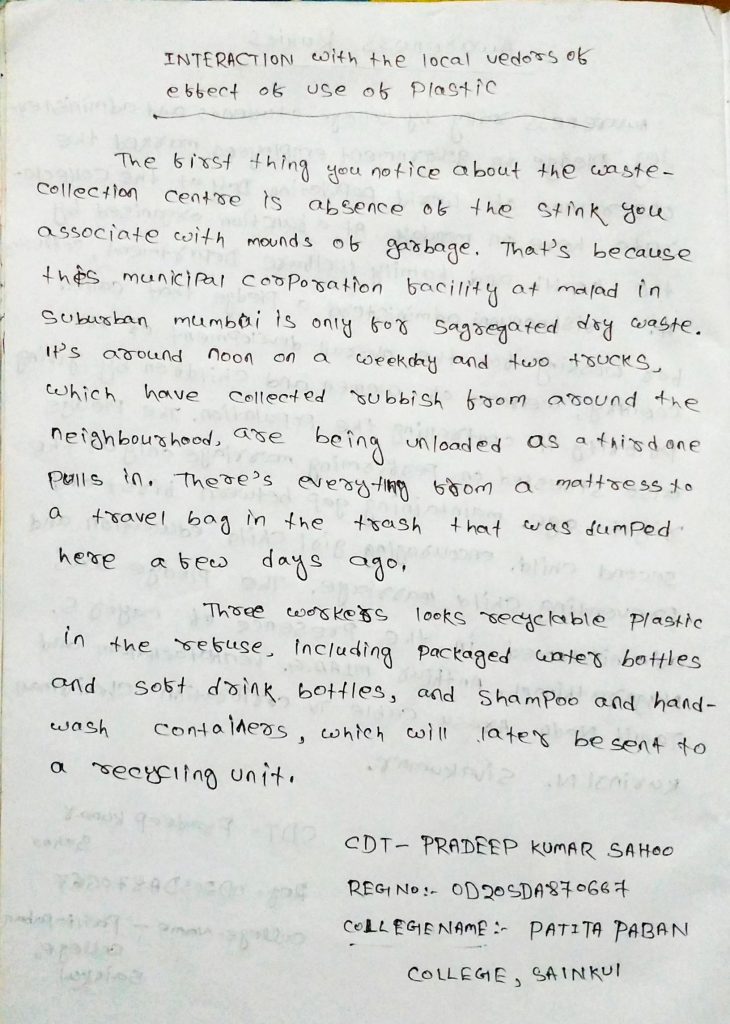 INTERACTION with the local vedors of
effect of use of Plastic
The first thing you notice about the waste-
collection centre is absence of the stink you
associate with mounds of garbage. That's because
this municipal corporation facility at malad in
suburban mumbai is only for sagregated dry waste.
It's around noon on a weekday and two trucks,
which have collected rubbish from around the
neighbourhood, are being unloaded as a third one
pulls in. There's everything from a mattress to
a travel bag in the trash that was dumped
here a few days ago.
Three workers looks recyclable plastic
in the refuse, including packaged water bottles
and soft drink bottles, and shampoo and hand-
wash containers, which will later be sent to
a recycling unit.
CDT- PRADEEP KUMAR SAHOO
REG NO:- OD20SDA870667
COLLEGE NAME:- PATITA PABAN
COLLEGE, SAINKUI